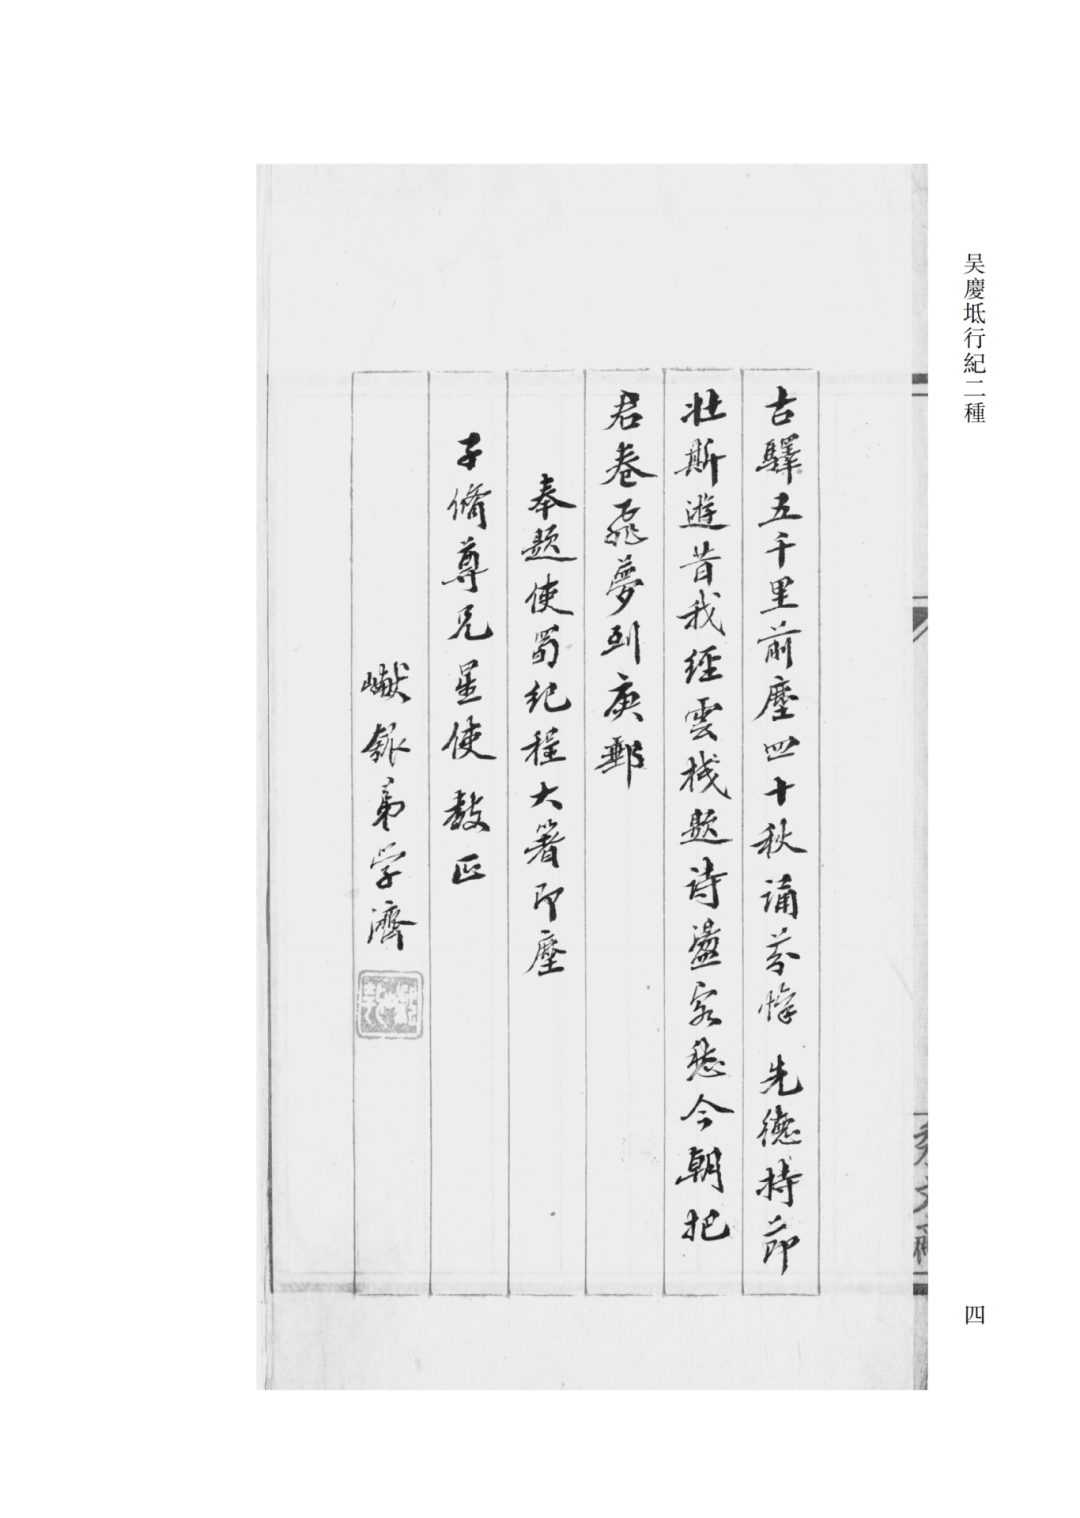 吴慶坻行紀二種
古驛五千里前塵四十秋誦芬懷先德持節
壯斯遊昔我經雲棧題詩盪客愁今朝把
君卷飛夢到庚郵
奉題使蜀紀程大著即塵
子脩尊兄星使教正
弟學濟
四